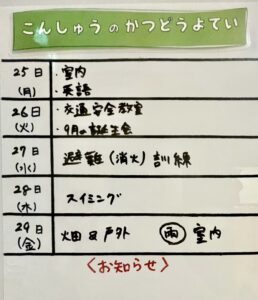 こんしゅうのかつどうよてい
25日 ・室内
(月) ・英語
26日 ・交通安全教室
(火) ・9月の誕生会
27日 避難(消火)訓練
(水)
28日 スイミング
(木)
29日 畑 戸外 雨 室内
(金)
〈お知らせ〉